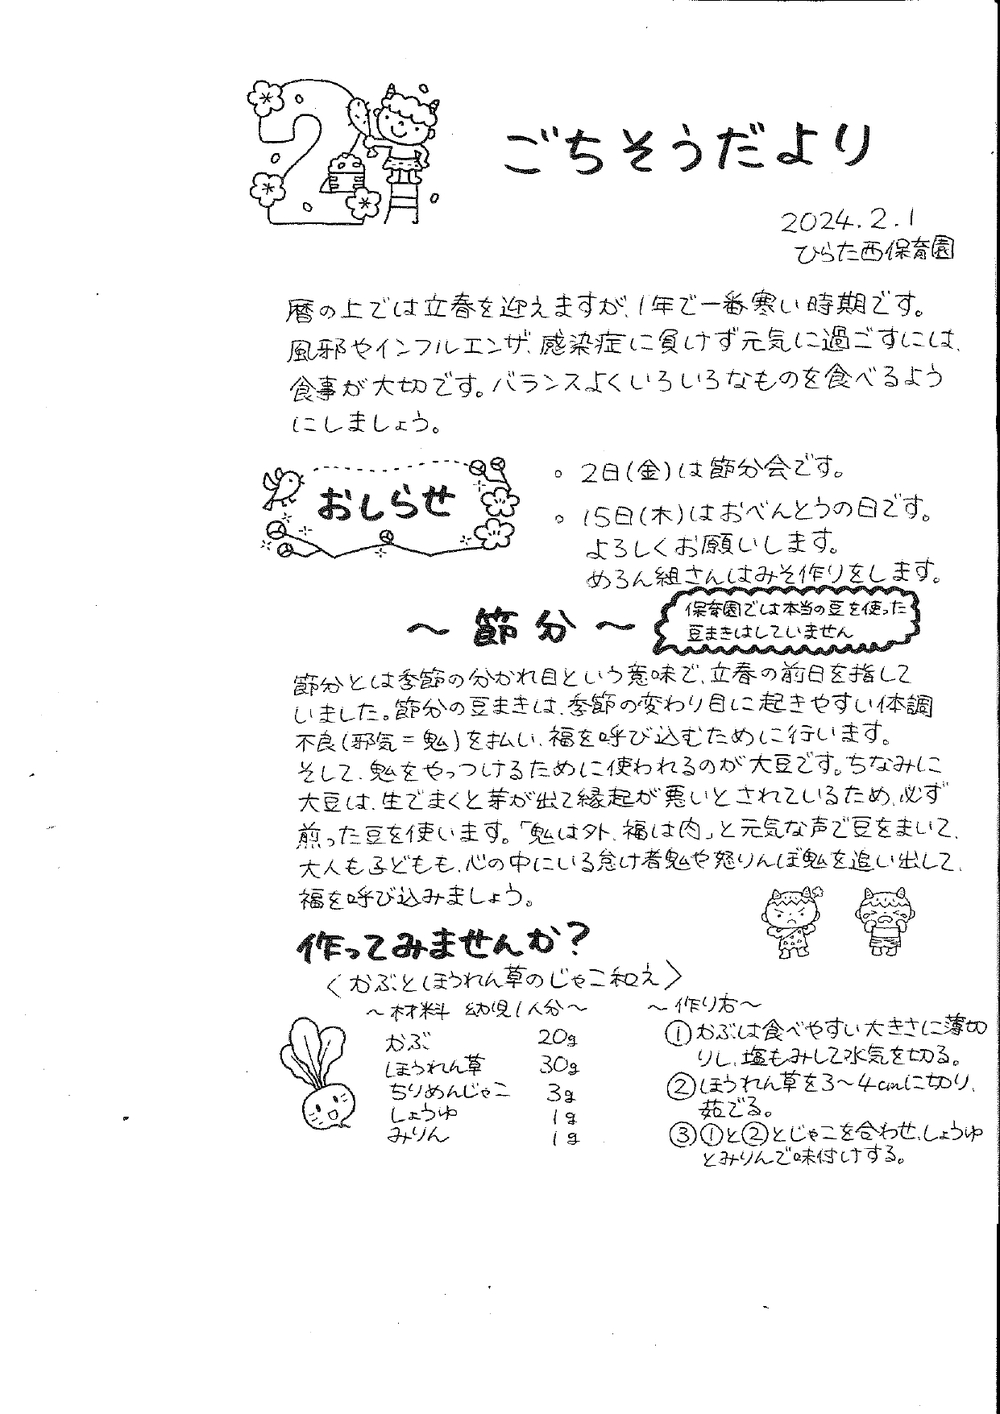 2
ごちそうだより
2024.2.1
ひらた西保育園
暦の上では立春を迎えますが、1年で一番寒い時期です。
風邪やインフルエンザ、感染症に負けず元気に過ごすには、
食事が大切です。バランスよくいろいろなものを食べるよう
にしましょう。
おしらせ
○ 2日(金)は節分会です。
○ 15日(木)はおべんとうの日です。
よろしくお願いします。
めろん組さんはみそ作りをします。
～節分～
保育園では本当の豆を使った
豆まきはしていません
節分とは季節の分かれ目という意味で、立春の前日を指して
いました。節分の豆まきは、季節の変わり目に起きやすい体調
不良(邪気=鬼)を払い、福を呼び込むために行います。
そして、鬼をやっつけるために使われるのが大豆です。ちなみに
大豆は、生でまくと芽が出て縁起が悪いとされているため、必ず
煎った豆を使います。「鬼は外、福は内」と元気な声で豆をまいて、
大人も子どもも、心の中にいる怠け者鬼や怒りんぼ鬼を追い出して、
福を呼び込みましょう。
作ってみませんか?
〈かぶとほうれん草のじゃこ和え〉
～材料 幼児1人分～
かぶ 20g
ほうれん草 30g
ちりめんじゃこ 3g
しょうゆ 1g
みりん 1g
～作り方～
①かぶは食べやすい大きさに薄切
りし、塩もみして水気を切る。
②ほうれん草を3～4cmに切り、
茹でる。
③①と②とじゃこを合わせ、しょうゆ
とみりんで味付けする。